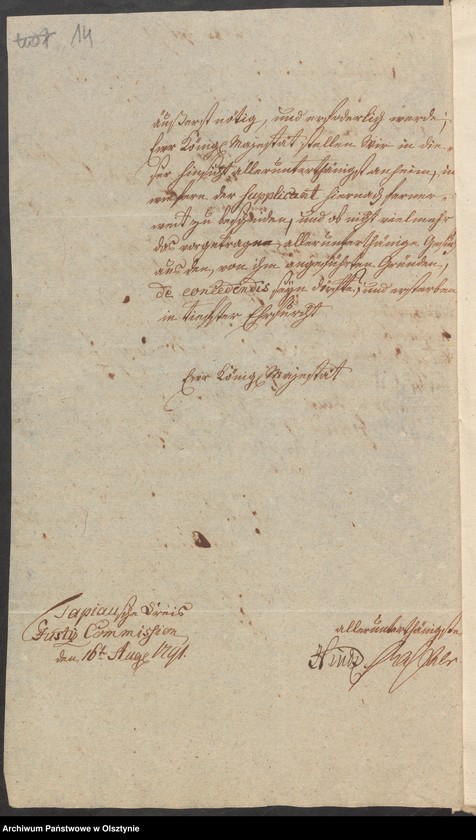 14
äußerst nötig, und erfoderlich werde;
Ewr Königl Majestät stellen Wir in die-
ser Hinsicht allerunterthänigst anheim, in
wiefern der Supplicant hiernach ferner-
weit zu bescheiden, und ob nicht vielmehr
das vorgetragne allerunterthänige Gesuch
aus den, von ihm angeführten Gründen,
de concedendis seyn dürfte, und ersterben
in tiefster Ehrfurcht
Ewr Königl Majestät
Tapiausche Creis
Justiz Commission
den 16t Aug 1791.
allerunterthänigste
Archiwum Państwowe w Olsztynie